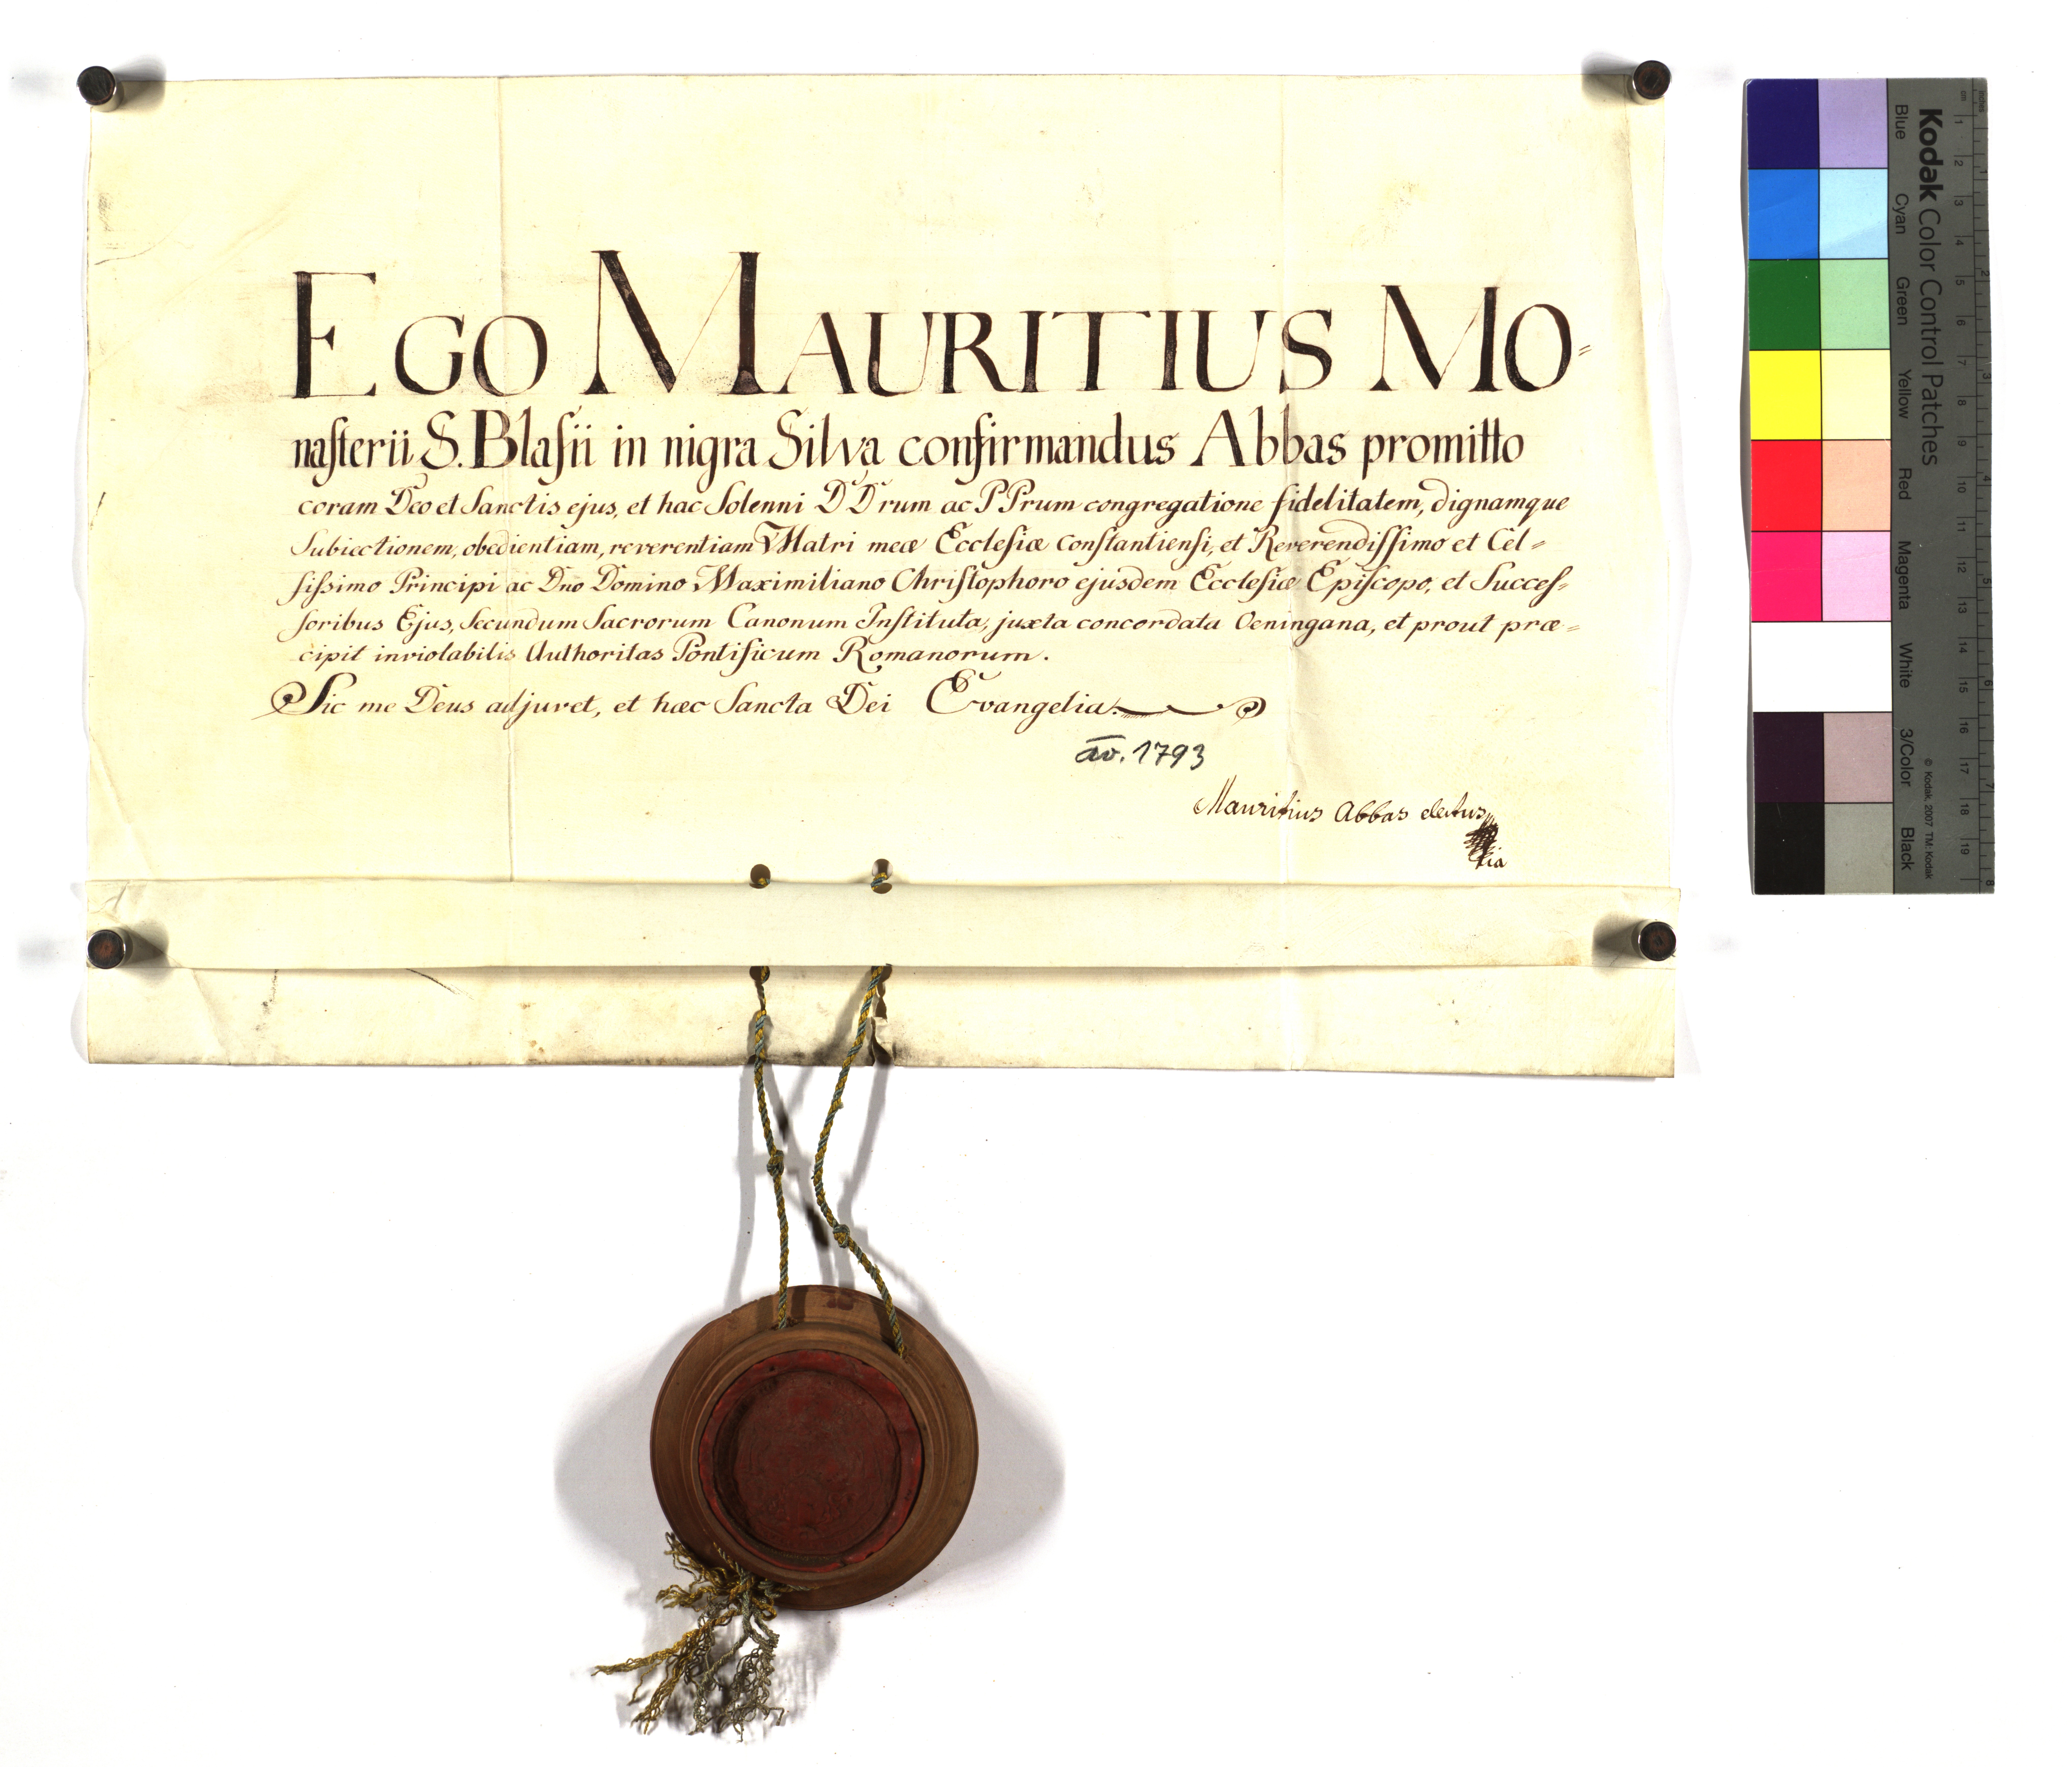 EGO MAURITIUS MO=
naſterii S. Blaſii in nigra Silva confirmandus Abbas promitto
coram Deo et Sanctis ejus, et hac Solenni D Drum ac P Prum congregatione fidelitatem, dignamque
Subiectionem, obedientiam, reverentiam Matri meæ Eccleſiæ Conſtantienſi, et Reverendiſſimo et Cel=
ſiſsimo Principi ac Dno Domino Maximiliano Chriſtophoro ejusdem Eccleſiæ Epiſcopo, et Succeſ=
ſoribus Ejus, Secundum Sacrorum Canonum Inſtituta, juxta concordata Oeningana, et prout præ=
cipit inviolabilis Authoritas Pontificum Romanorum.
Sic me Deus adjuvet, et hæc Sancta Dei Evangelia.
ao. 1793
Mauritius Abbas electus
Kodak Color Control Patches
Blue Cyan Green Yellow Red Magenta White 3/Color Black
© Kodak, 2007 TM: Kodak
cm 1 2 3 4 5 6 7 8 9 10 11 12 13 14 15 16 17 18 19
inches 1 2 3 4 5 6 7 8